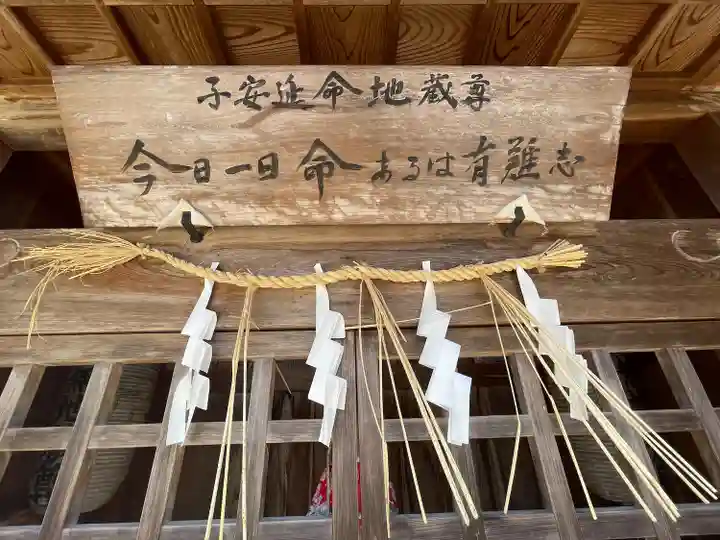 子安延命地蔵尊
今日一日命あるは有難志